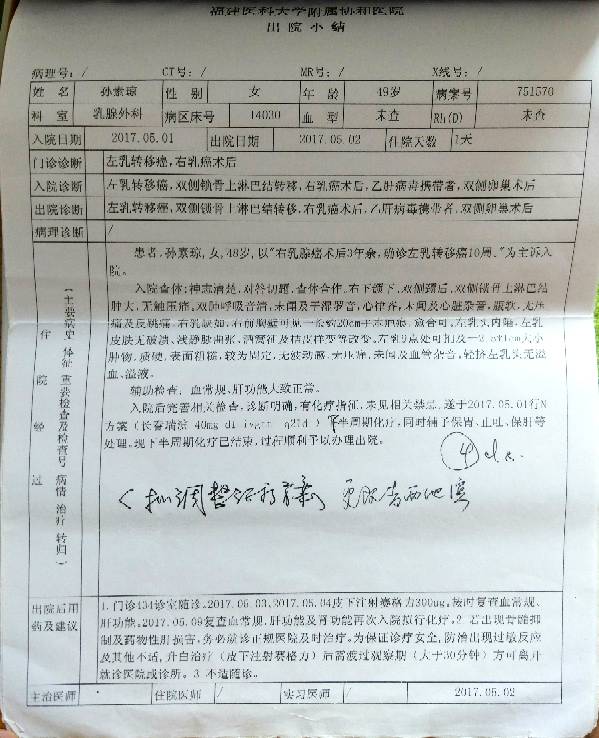 福建医科大学附属协和医院
出院小结
病理号：/ CT号：/ MR号：/ X线号：/
姓名 孙素琼 性别 女 年龄 49岁 病案号 751570
科室 乳腺外科 病区床号 14030 血型 未查 Rh(D) 未查
入院日期 2017.05.01 出院日期 2017.05.02 住院天数 1天
门诊诊断 左乳转移癌,右乳癌术后
入院诊断 左乳转移癌,双侧锁骨上淋巴结转移,右乳癌术后,乙肝病毒携带者,双侧卵巢术后
出院诊断 左乳转移癌,双侧锁骨上淋巴结转移,右乳癌术后,乙肝病毒携带者,双侧卵巢术后
病理诊断 /
住院经过
（主要病史 体征 重要检查及检查号 病情 治疗 转归）
患者,孙素琼,女,48岁,以"右乳腺癌术后3年余,确诊左乳转移癌10周。"为主诉入
院。
入院查体:神志清楚,对答切题,查体合作。右下颌下,双侧颈后,双侧锁骨上淋巴结
肿大,无触压痛,双肺呼吸音清,未闻及干湿罗音,心律齐,未闻及心脏杂音,腹软,无压
痛及反跳痛,右乳缺如,右前胸壁可见一长约20cm手术疤痕,愈合可,左乳头内陷,左乳
皮肤无破溃、浅静脉曲张、酒窝征及桔皮样变等改变。左乳9点处可扪及一 大小
肿物,质硬,表面粗糙,较为固定,无波动感,无压痛,未闻及血管杂音,轻挤左乳头无溢
血、溢液。
辅助检查：血常规、肝功能大致正常。
入院后完善相关检查,诊断明确,有化疗指征,未见相关禁忌,遂于2017.05.01行N
方案（长春瑞滨 40mg d1 ivgtt q21d ）下半周期化疗,同时辅予保胃、止吐、保肝等
处理。现下半周期化疗已结束,过程顺利予以办理出院。
调整治疗方案 更服 西他滨
出院后用药及建议
1.门诊434诊室随诊。2017.05.03、2017.05.04皮下注射赛格力300ug。按时复查血常规、
肝功能。2017.05.09复查血常规,肝功能及肾功能再次入院拟行化疗。2.若出现骨髓抑
制及药物性肝损害,务必就诊正规医院及时治疗。为保证诊疗安全,防治出现过敏反应
及其他不适,升白治疗（皮下注射赛格力）后需渡过观察期（大于30分钟）方可离开
就诊医院或诊所。3.不适随诊。
主治医师 / 住院医师 / 实习医师 / 2017.05.02